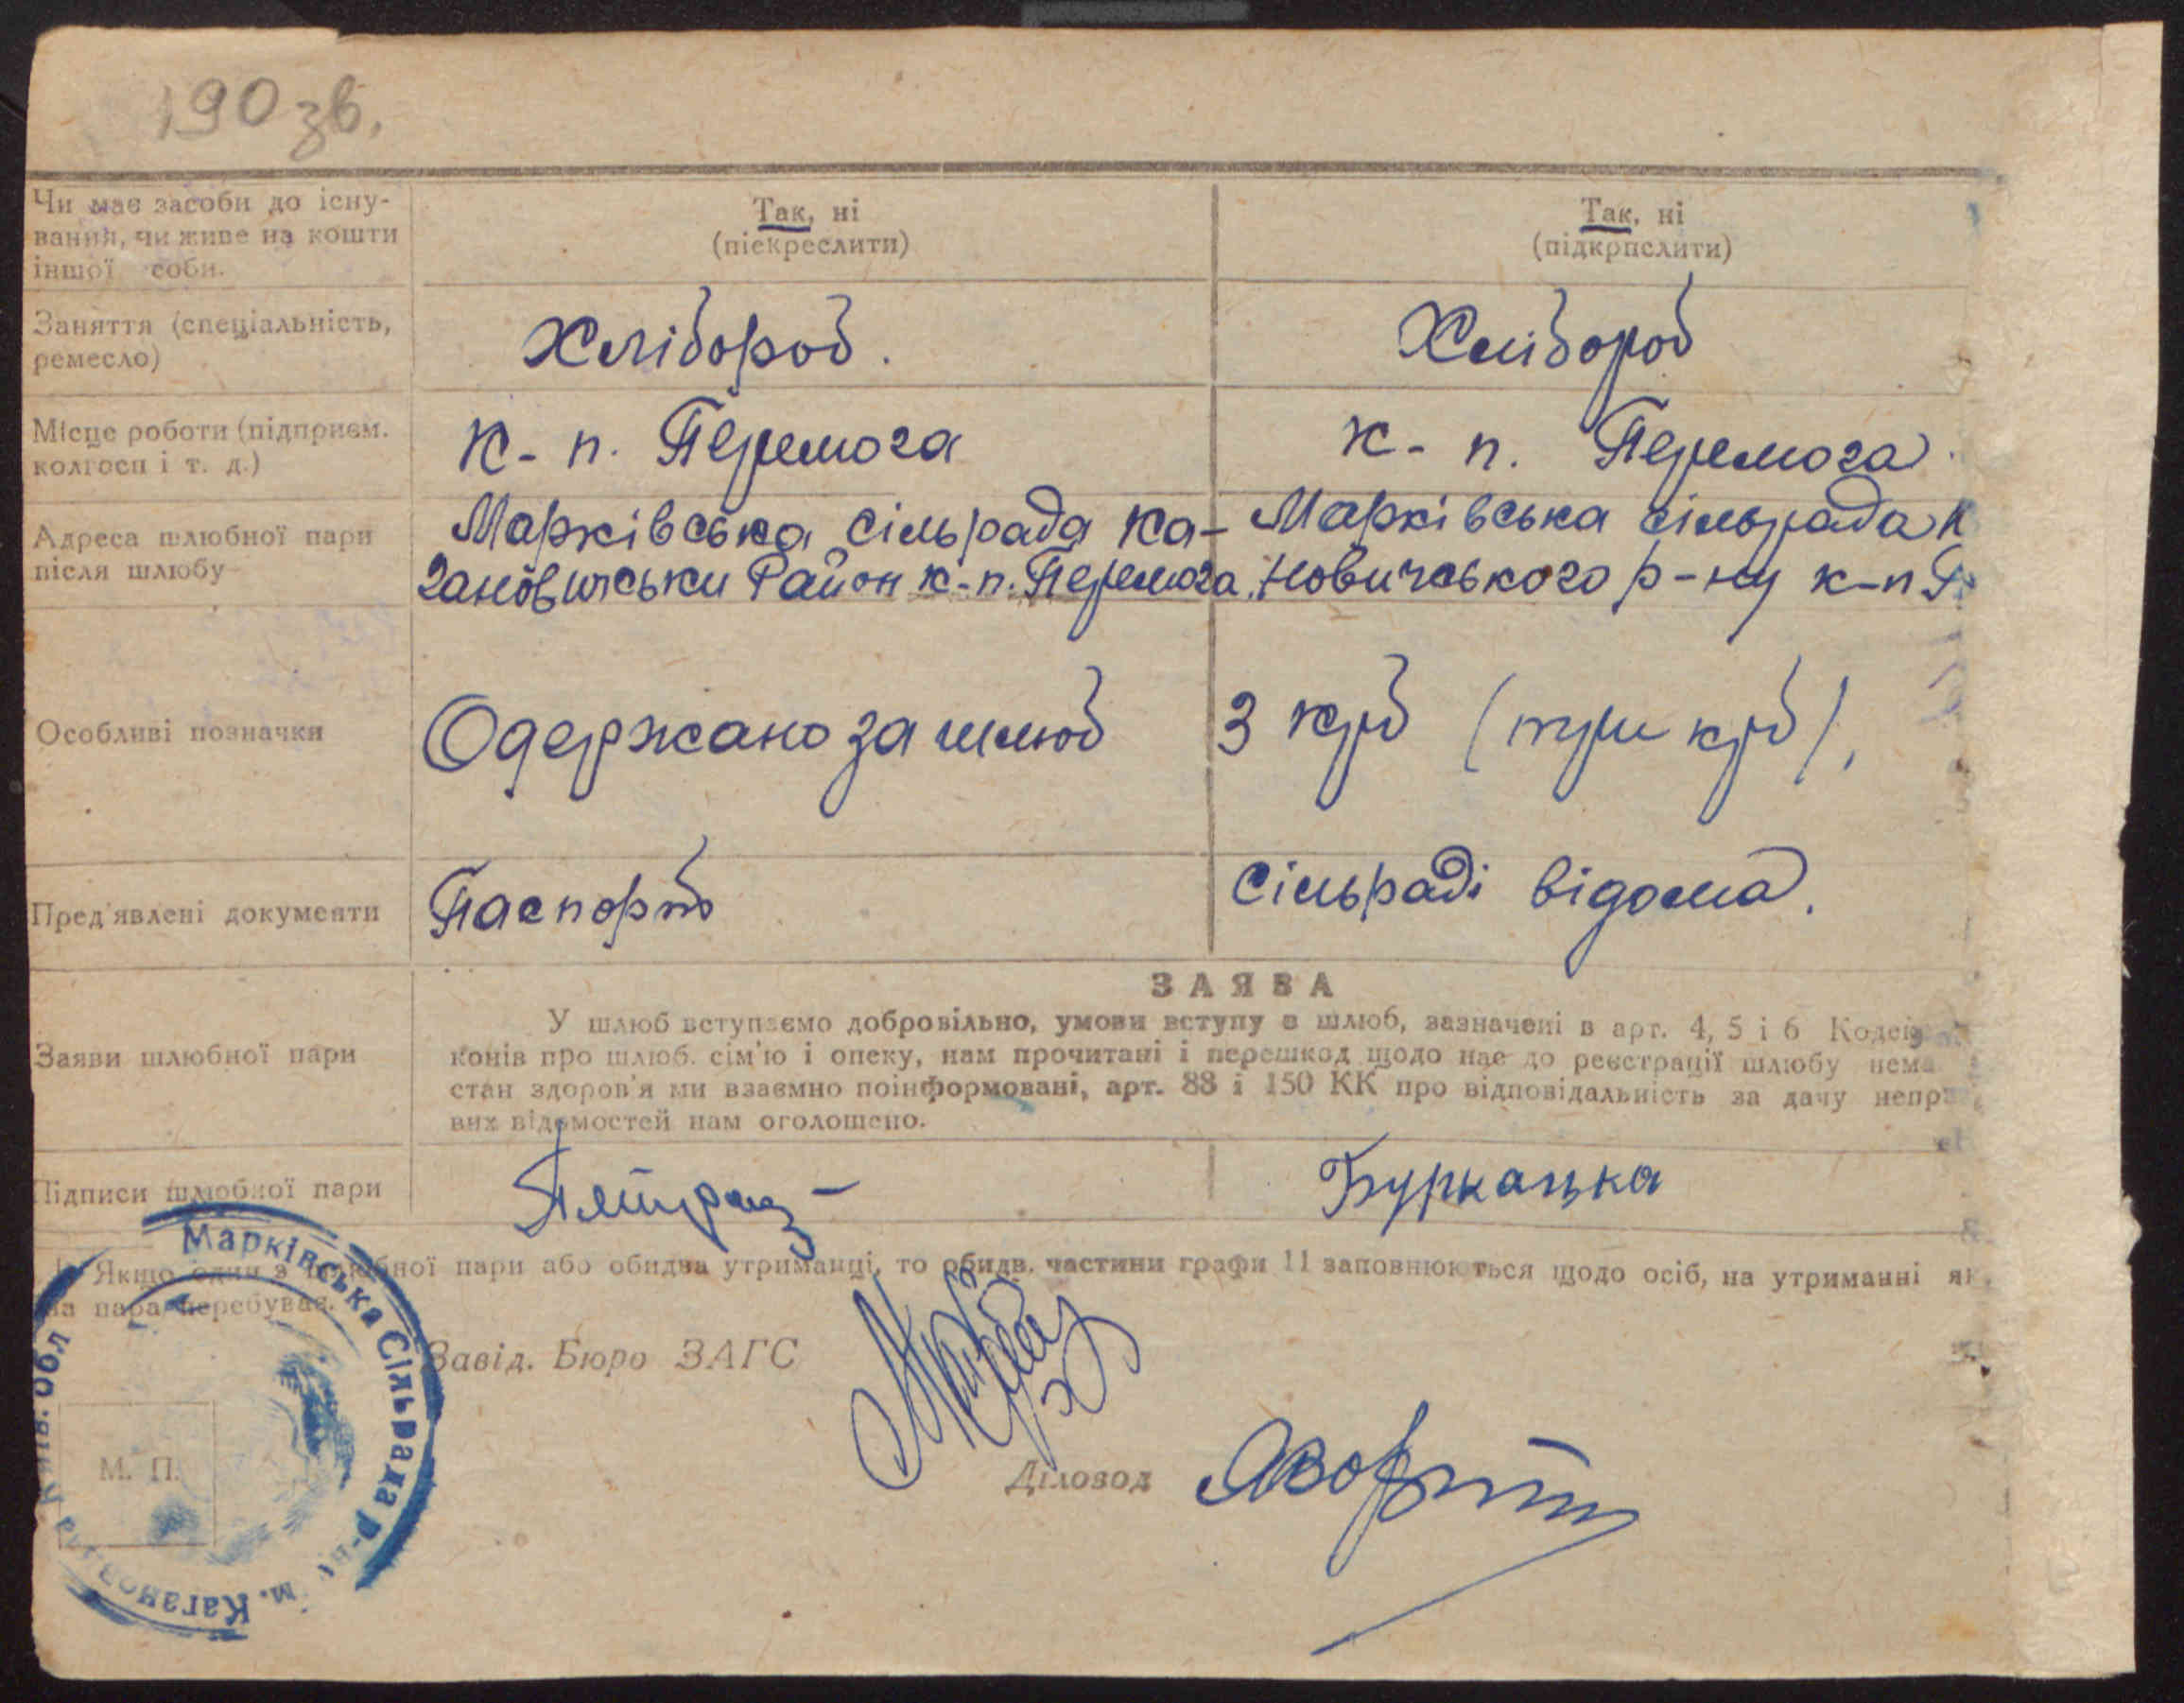 190 зв.
Чи має засоби до існу-
вання, чи живе на кошти
іншої соби.
Так, ні
(піекреслити)
Так, ні
(підкрпслити)
Заняття (спеціальність,
ремесло)
Хлібороб.
Хлібороб
Місце роботи (підприєм.
колгосп і т. д.)
к-п. Перемога
к-п. Перемога
Адреса шлюбної пари
після шлюбу
Марківська сільрада Ка-
гановичськи Район к-п. Перемога.
Марківська сільрада К
новичського р-ну к-п П
Особливі позначки
Одержано за шлюб
3 крб (три крб),
Пред'явлені документи
Паспорт
Сільраді відома.
Заяви шлюбної пари
ЗАЯВА
У шлюб вступаємо добровільно, умови вступу в шлюб, зазначені в арт. 4, 5 і 6 Кодек
конів про шлюб. сім'ю і опеку, нам прочитані і перешкод щодо нас до реєстрації шлюбу нема
стан здоров'я ми взаємно поінформовані, арт. 88 і 150 КК про відповідальність за дачу непра
вих відомостей нам оголошено.
Підписи шлюбної пари
Буркацька
Якщо один з шлюбної пари або обидва утриманці, то обидв. частини графи 11 заповнюються щодо осіб, на утриманні як
на пара перебуває.
Завід. Бюро ЗАГС
Діловод
М. П.
Марківська Сільрада р-н
м. Каганов
Київ. обл